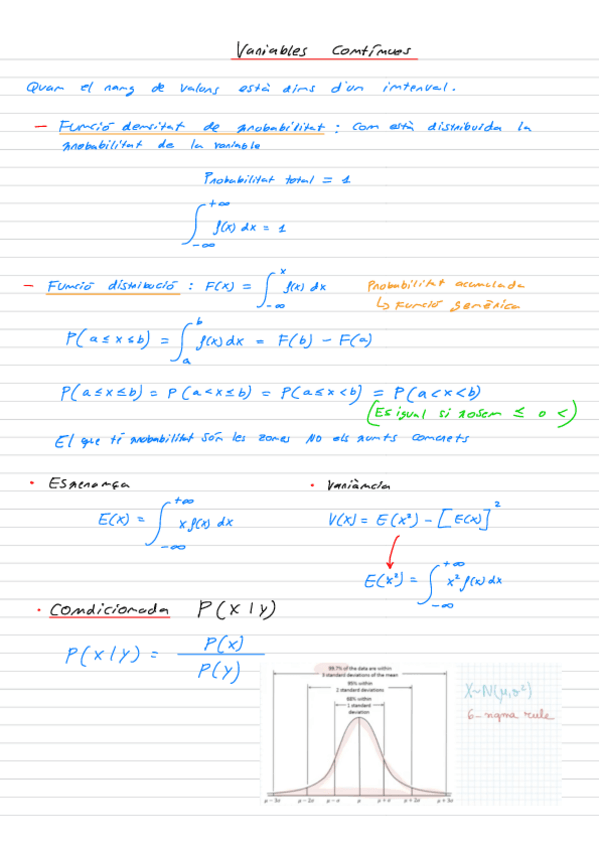 Variables Contínues
Quan el rang de valors està dins d'un interval.
- Funció densitat de probabilitat : com està distribuida la
probabilitat de la variable
Probabilitat total = 1
∫_{-∞}^{+∞} f(x) dx = 1
- Funció distribució : F(x) = ∫_{-∞}^{x} f(x) dx Probabilitat acumulada
↳ Funció genèrica
P(a ≤ x ≤ b) = ∫_{a}^{b} f(x) dx = F(b) - F(a)
P(a ≤ x ≤ b) = P(a < x ≤ b) = P(a ≤ x < b) = P(a < x < b)
(Es igual si posem ≤ o <)
El que té probabilitat són les zones NO els punts concrets
• Esperança • Variància
E(x) = ∫_{-∞}^{+∞} x f(x) dx V(x) = E(x²) - [E(x)]²
E(x²) = ∫_{-∞}^{+∞} x² f(x) dx
• Condicionada P(x | y)
P(x / y) = P(x) / P(y)
99.7% of the data are within
3 standard deviations of the mean
95% within
2 standard deviations
68% within
1 standard
deviation
X~N(μ,σ²)
6-sigma rule
μ - 3σ μ - 2σ μ - σ μ μ + σ μ + 2σ μ + 3σ